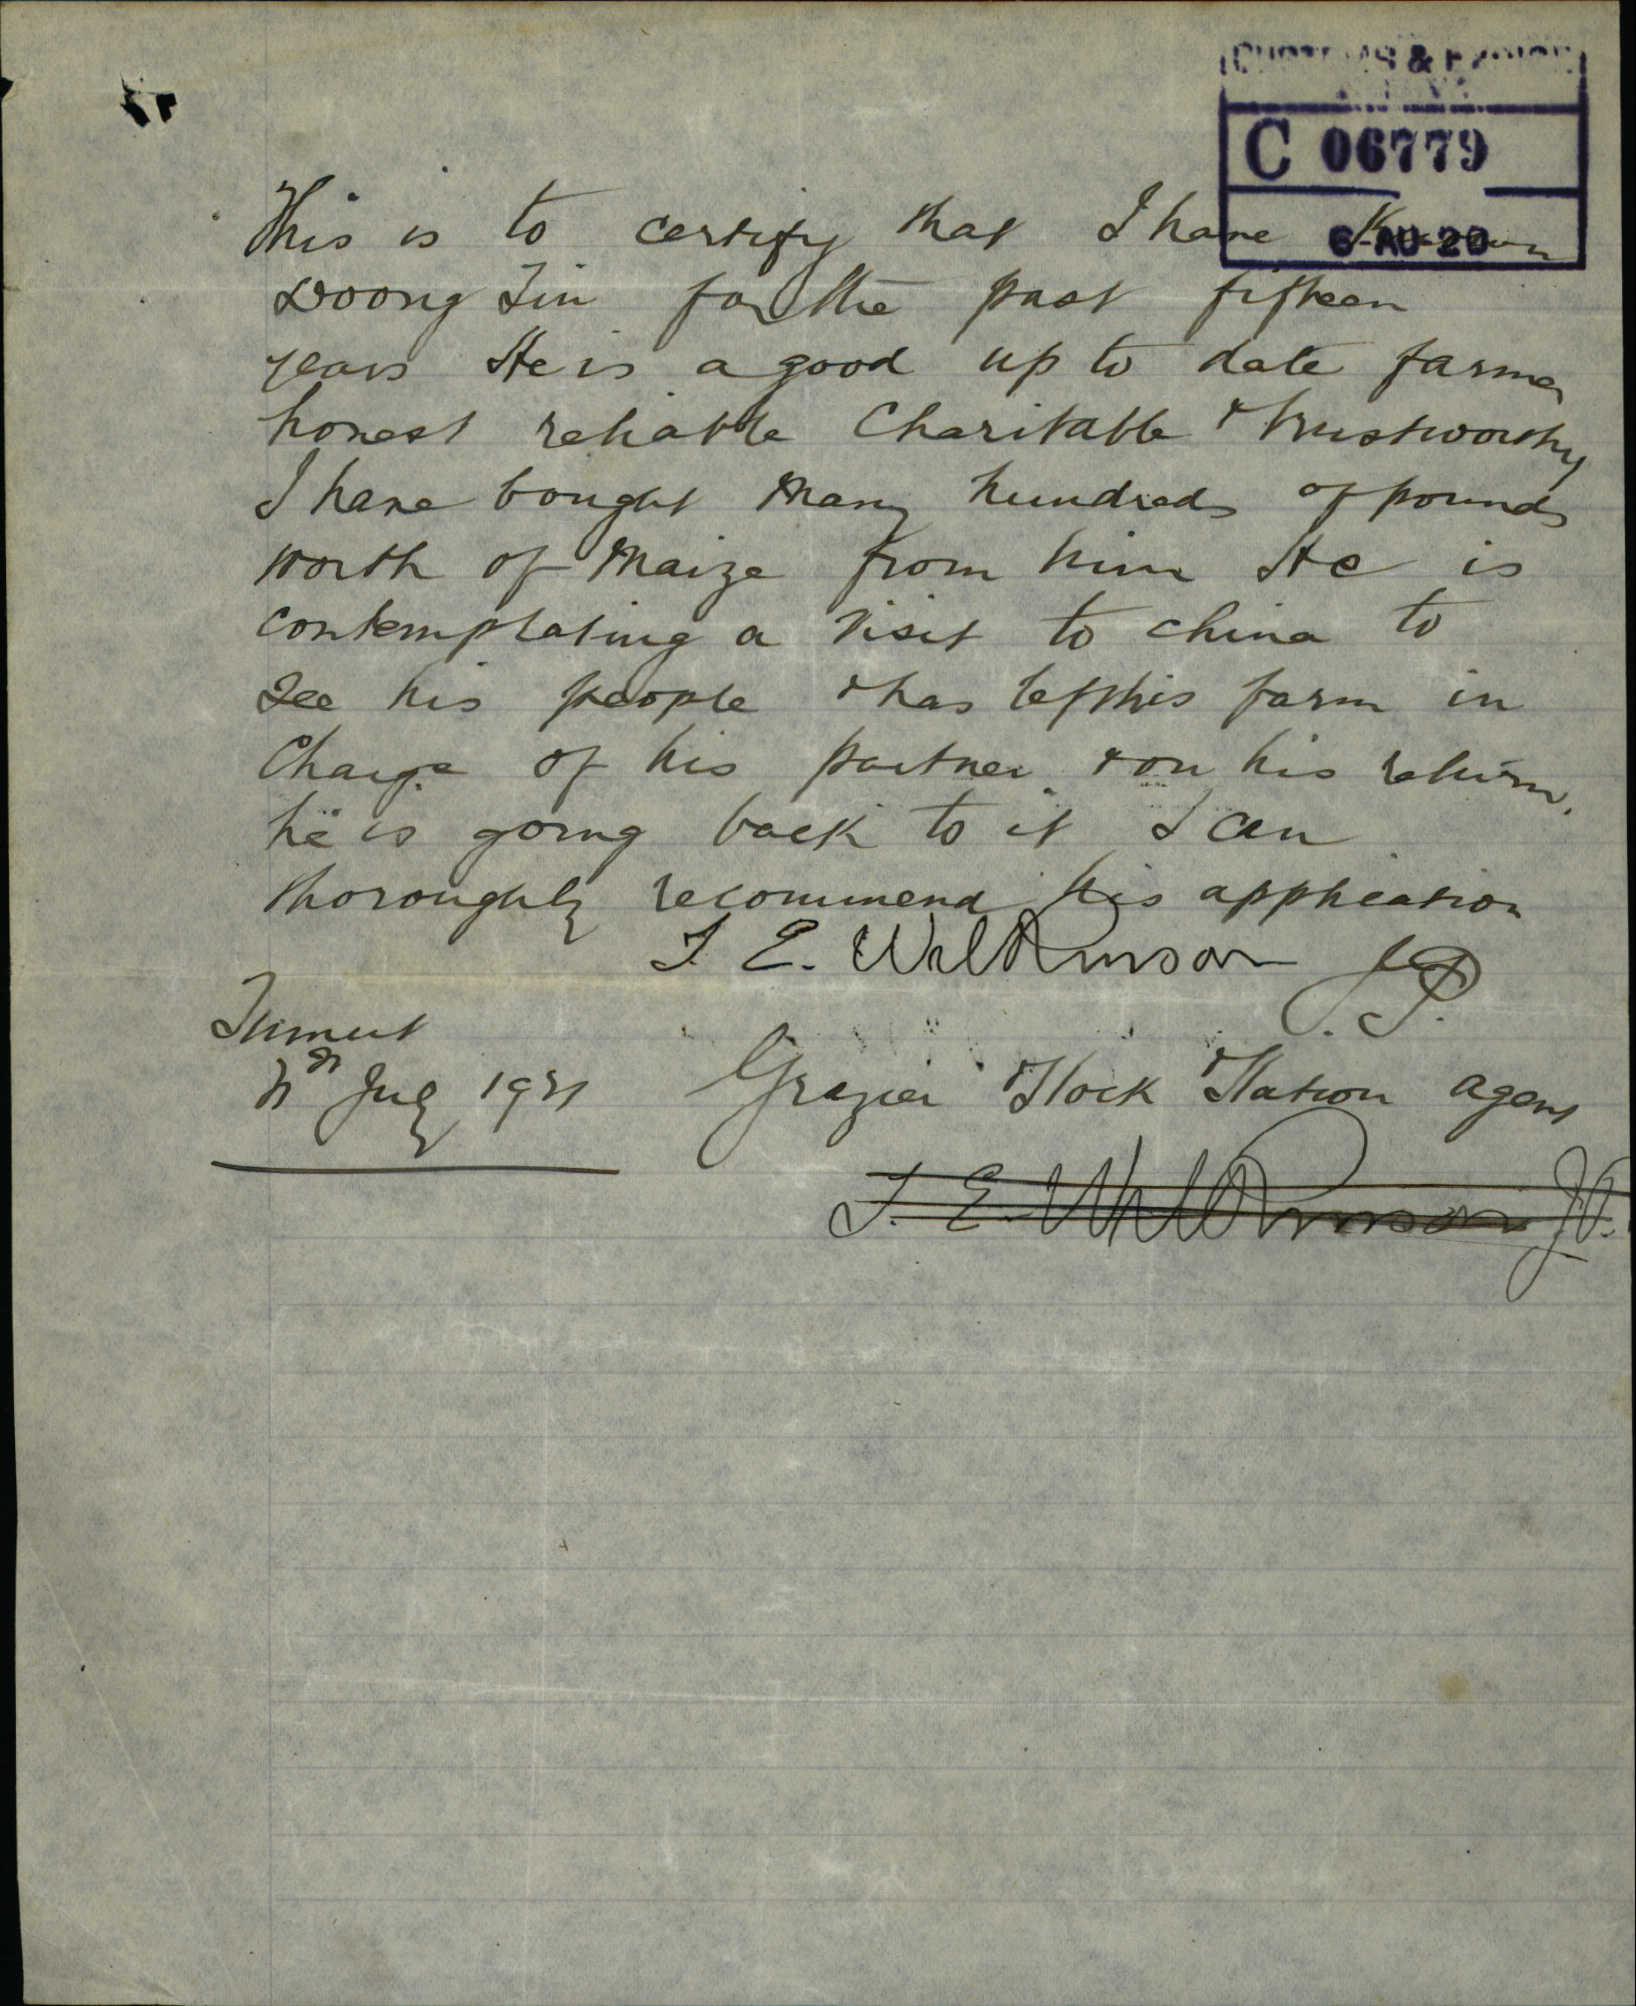 CUSTOMS & EXCISE
C 06779
6-AU 20
This is to certify that I have Known
Woong Tin for the past fifteen
years He is a good up to date farmer
honest reliable Charitable & trustworthy
I have bought Many hundreds of pounds
worth of Maize from him He is
contemplating a visit to china to
see his people & has left his farm in
Charge of his partner & on his return.
he is going back to it I can
thoroughly recommend his application
T. E. Wilkinson J.P.
Tumut
July
Grazier & Stock & Station agent
T. E. Wilkinson J.P.